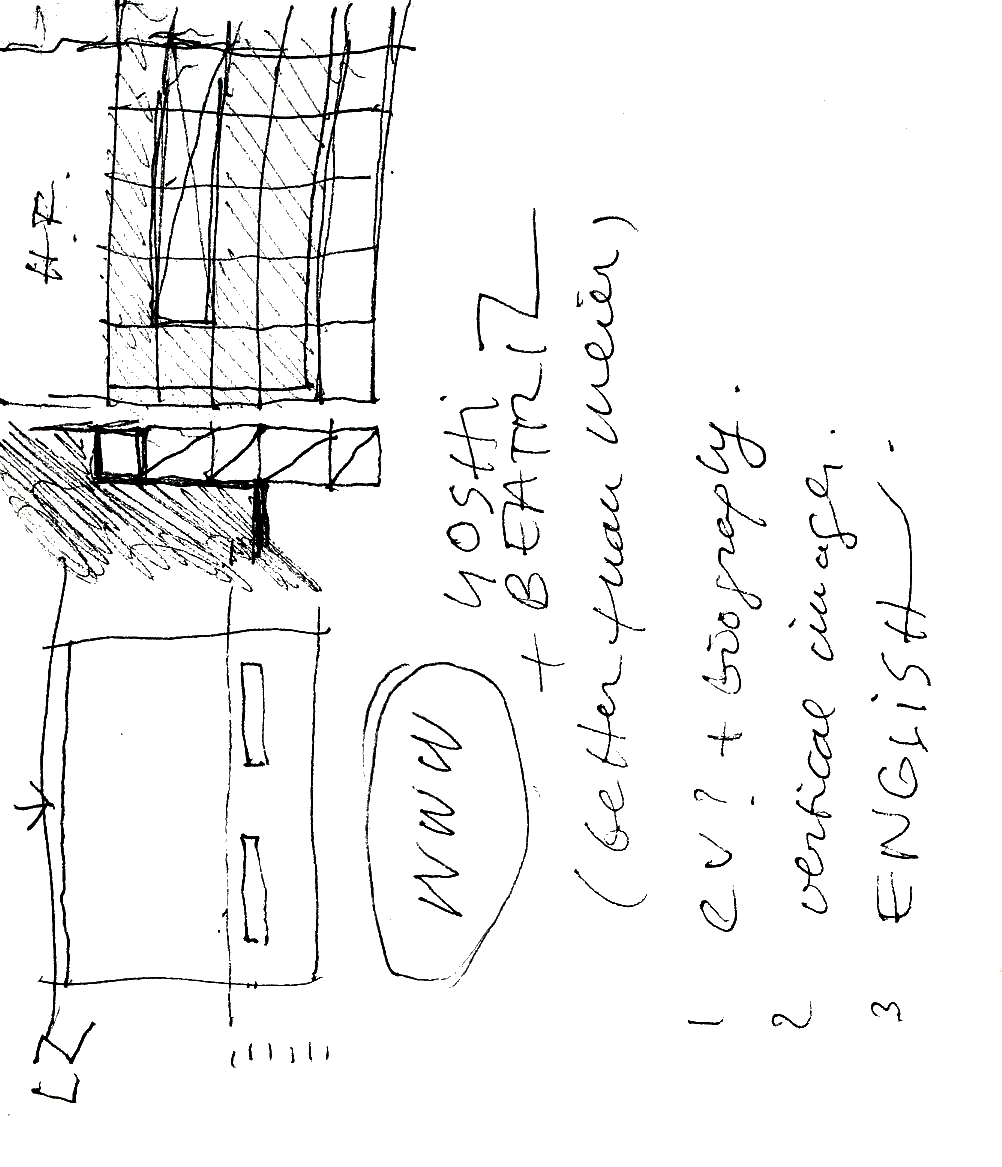 H.F.
LZ
WWW
YOSHi
+ BEATRIZ
(better than meier)
1 CV? + biography.
2 vertical image.
3 ENGLiSH.